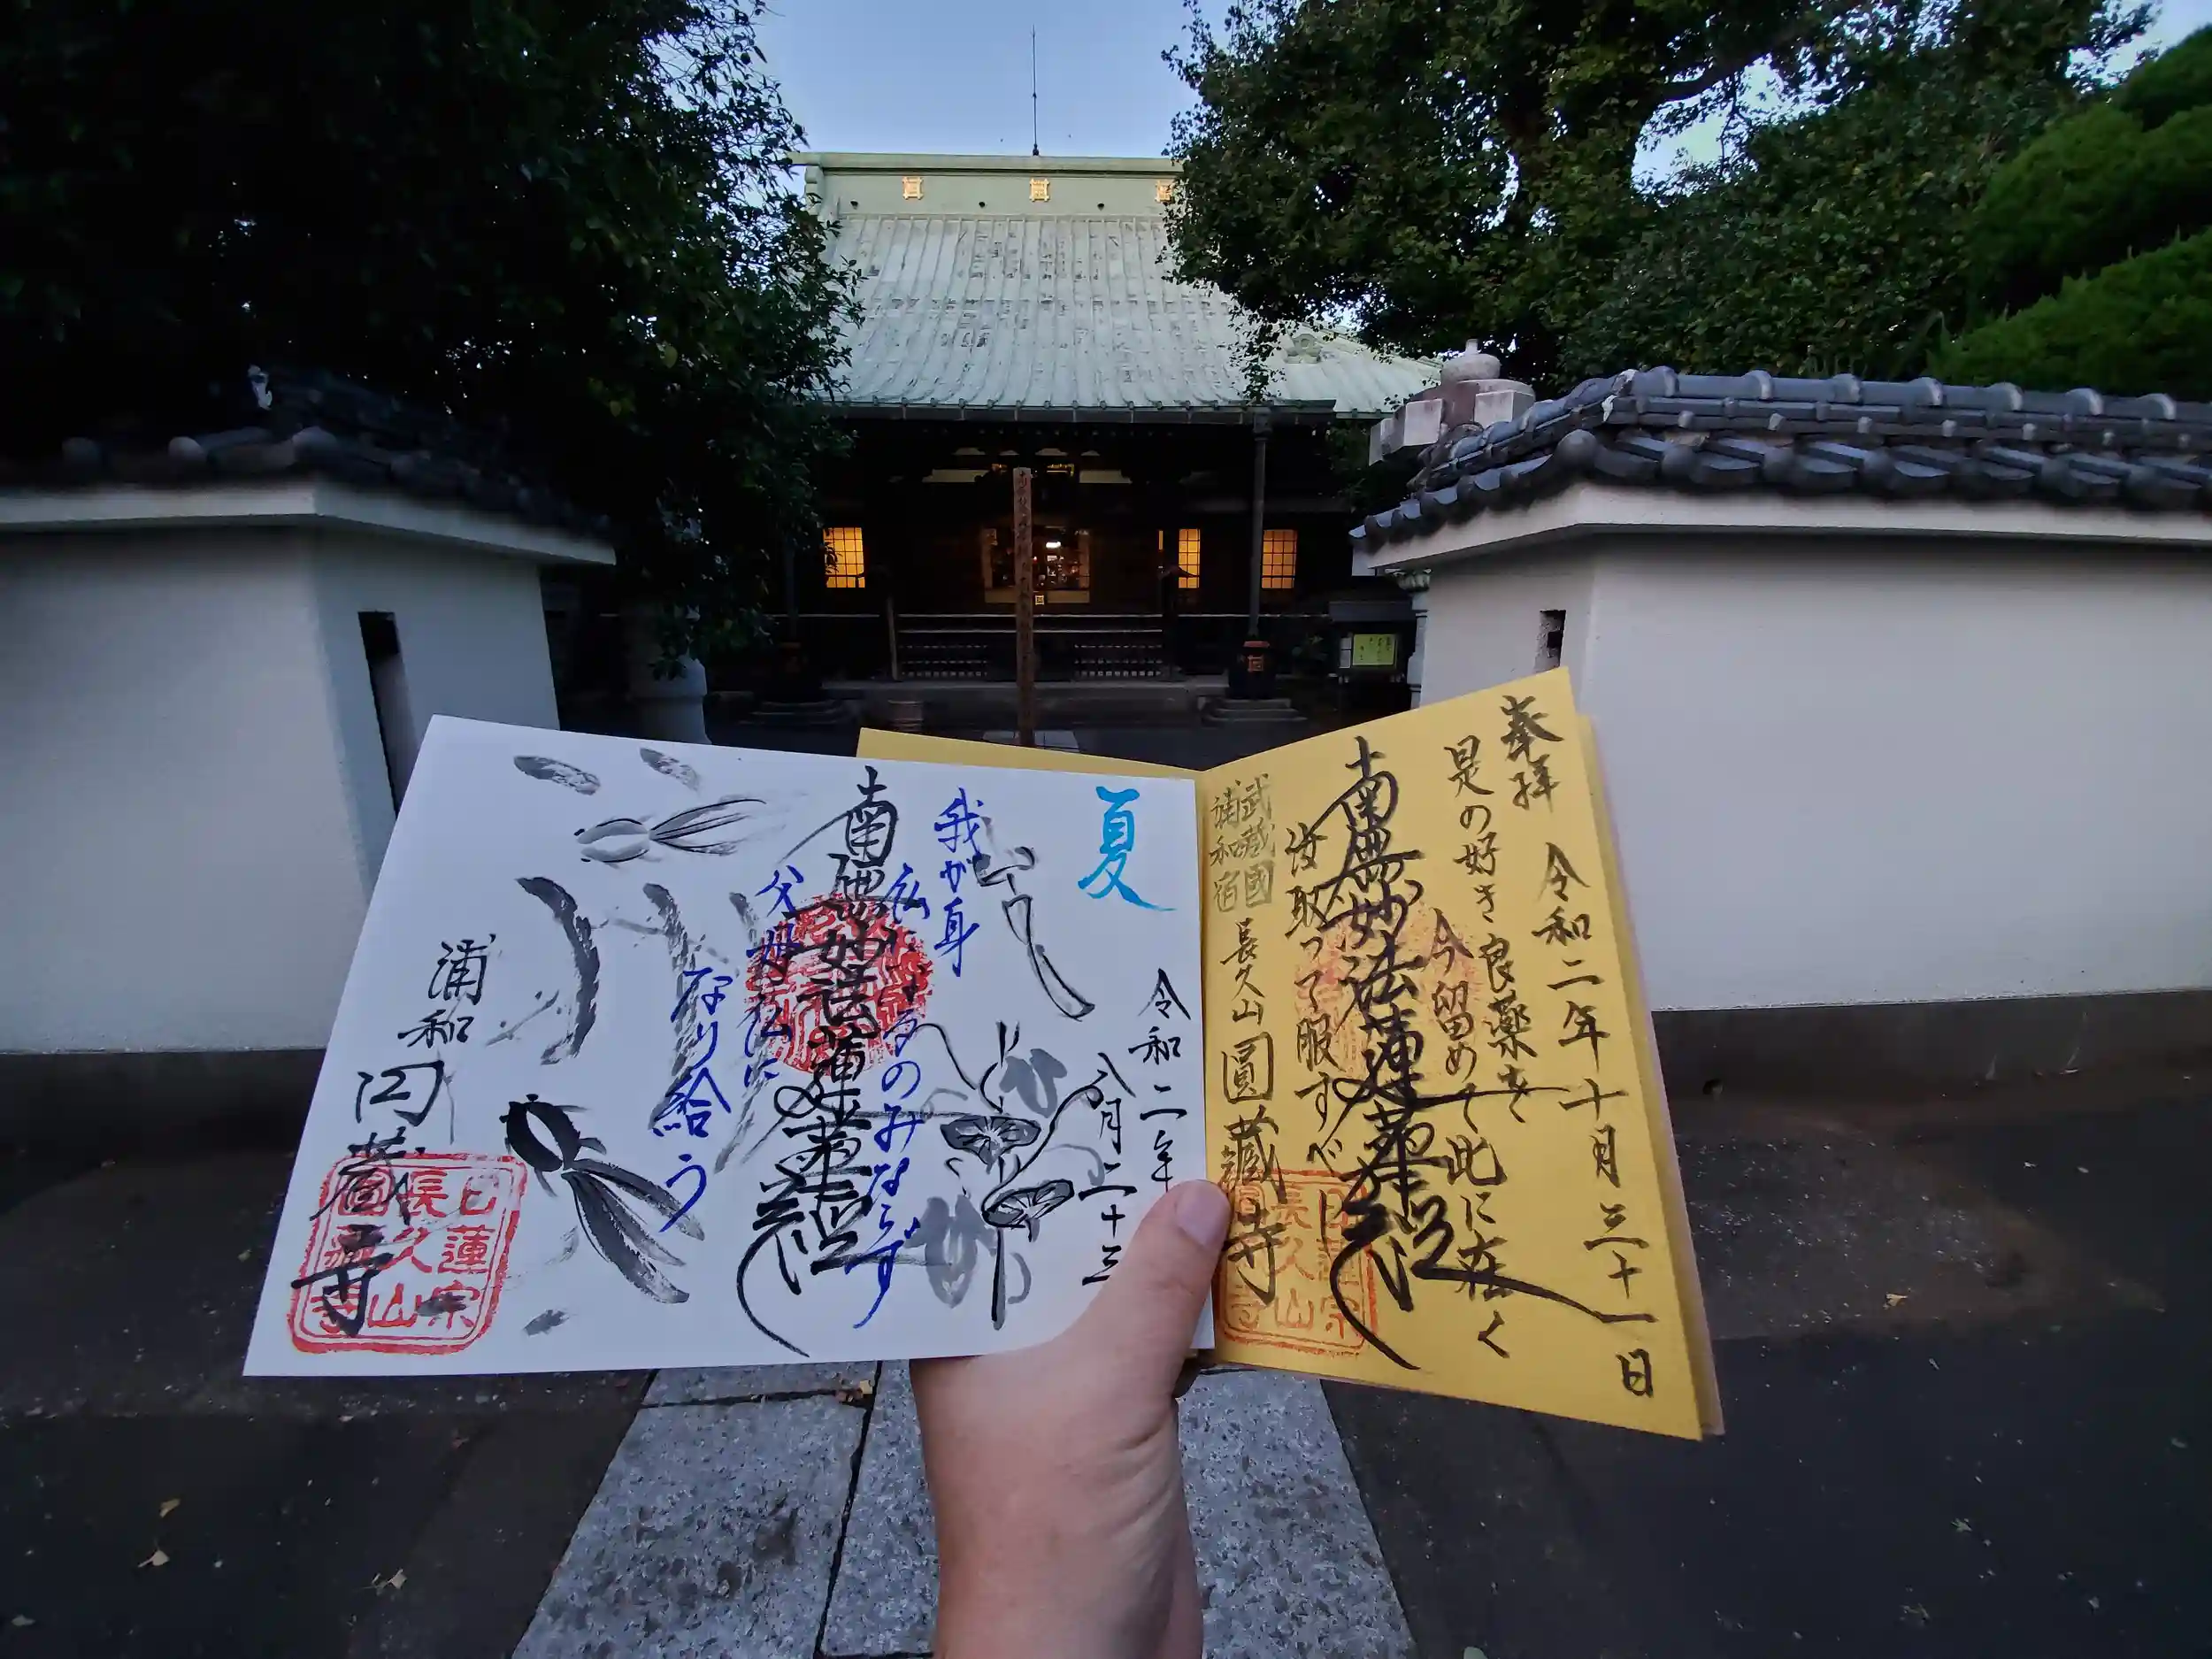 奉拝 令和二年十月三十一日
是の好き良薬を
今留めて此に在く
南無妙法蓮華経
汝取って服すべし
武蔵國
浦和宿
長久山圓蔵寺
日蓮宗
長久山
圓蔵寺
夏
令和二年
八月二十三
我が身
仏になるのみならず
南無妙法蓮華経
父母仏に
なり給う
浦和
円蔵寺
日蓮宗
長久山
圓蔵寺